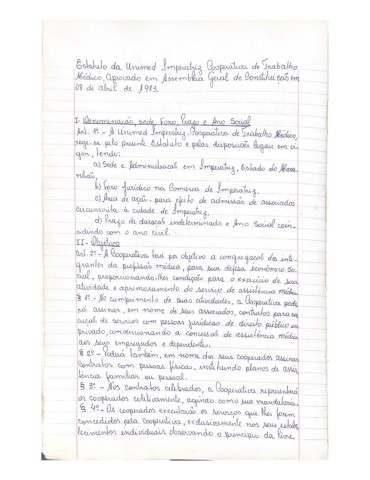 Estatuto da Unimed Imperatriz Cooperativa de Trabalho
Médico, Aprovado em Assembléia Geral de Constituição em
08 de abril de 1983.
I- Denominação, sede, Foro, Prazo e Ano Social
Art. 1º - A Unimed Imperatriz, Cooperativa de Trabalho Médico,
rege-se pelo presente Estatuto e pelas disposições legais em vi-
gor, tendo:
a) Sede e Administração em Imperatriz, Estado do Mara-
nhão,
b) Foro Jurídico na Comarca de Imperatriz,
c) Área de ação, para efeito de admissão de associados
circunscrita à cidade de Imperatriz,
d) Prazo de duração indeterminado e Ano Social coin-
cidindo com o ano civil.
II- Objetivo
Art. 2º - A Cooperativa terá por objetivo a congregação dos inte-
grantes da profissão médica, para sua defesa econômico-so-
cial, proporcionando-lhes condições para o exercício de suas
atividades e aprimoramento do serviço de assistência médica.
§ 1º - No cumprimento de suas atividades, a Cooperativa pode-
rá assinar, em nome de seus associados, contratos para exe-
cução de serviços com pessoas jurídicas de direito público ou
privado, convencionando a concessão de assistência médica
aos seus empregados e dependentes.
§ 2º - Poderá também, em nome dos seus cooperados assinar
contratos com pessoas físicas, instituindo planos de assis-
tência familiar ou pessoal.
§ 3º - Nos contratos celebrados, a Cooperativa representará
os cooperados coletivamente, agindo como sua mandatária.
§ 4º - Os cooperados executarão os serviços que lhes forem
concedidos pela Cooperativa, exclusivamente nos seus estabe-
lecimentos individuais observando o princípio da livre